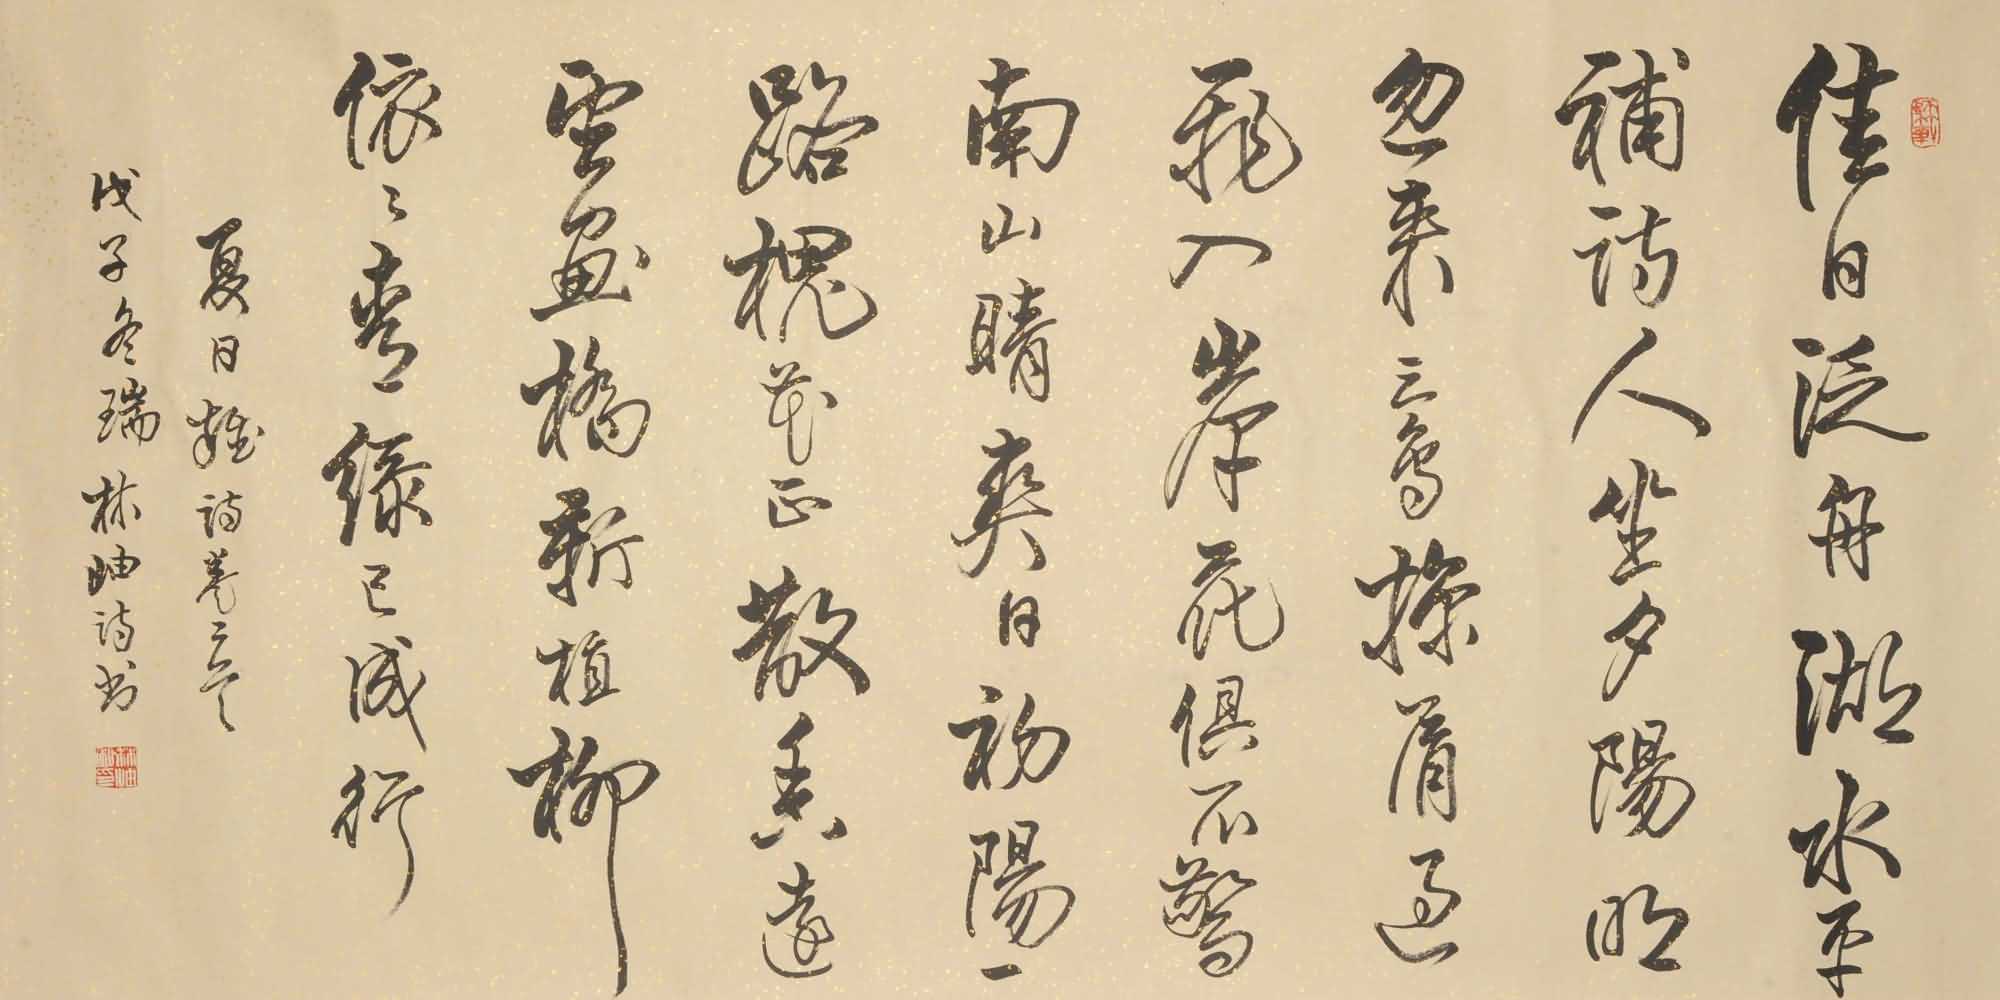 佳日泛舟湖水平
補詩人坐夕陽明
忽來三鳥掠肩過
飛入岸花俱不驚
南山晴爽日初陽一
路槐花正散香遠
望畫橋新植柳
依〻青綠已成行
夏日雜詩卷二首
戊子冬瑞林岫詩書